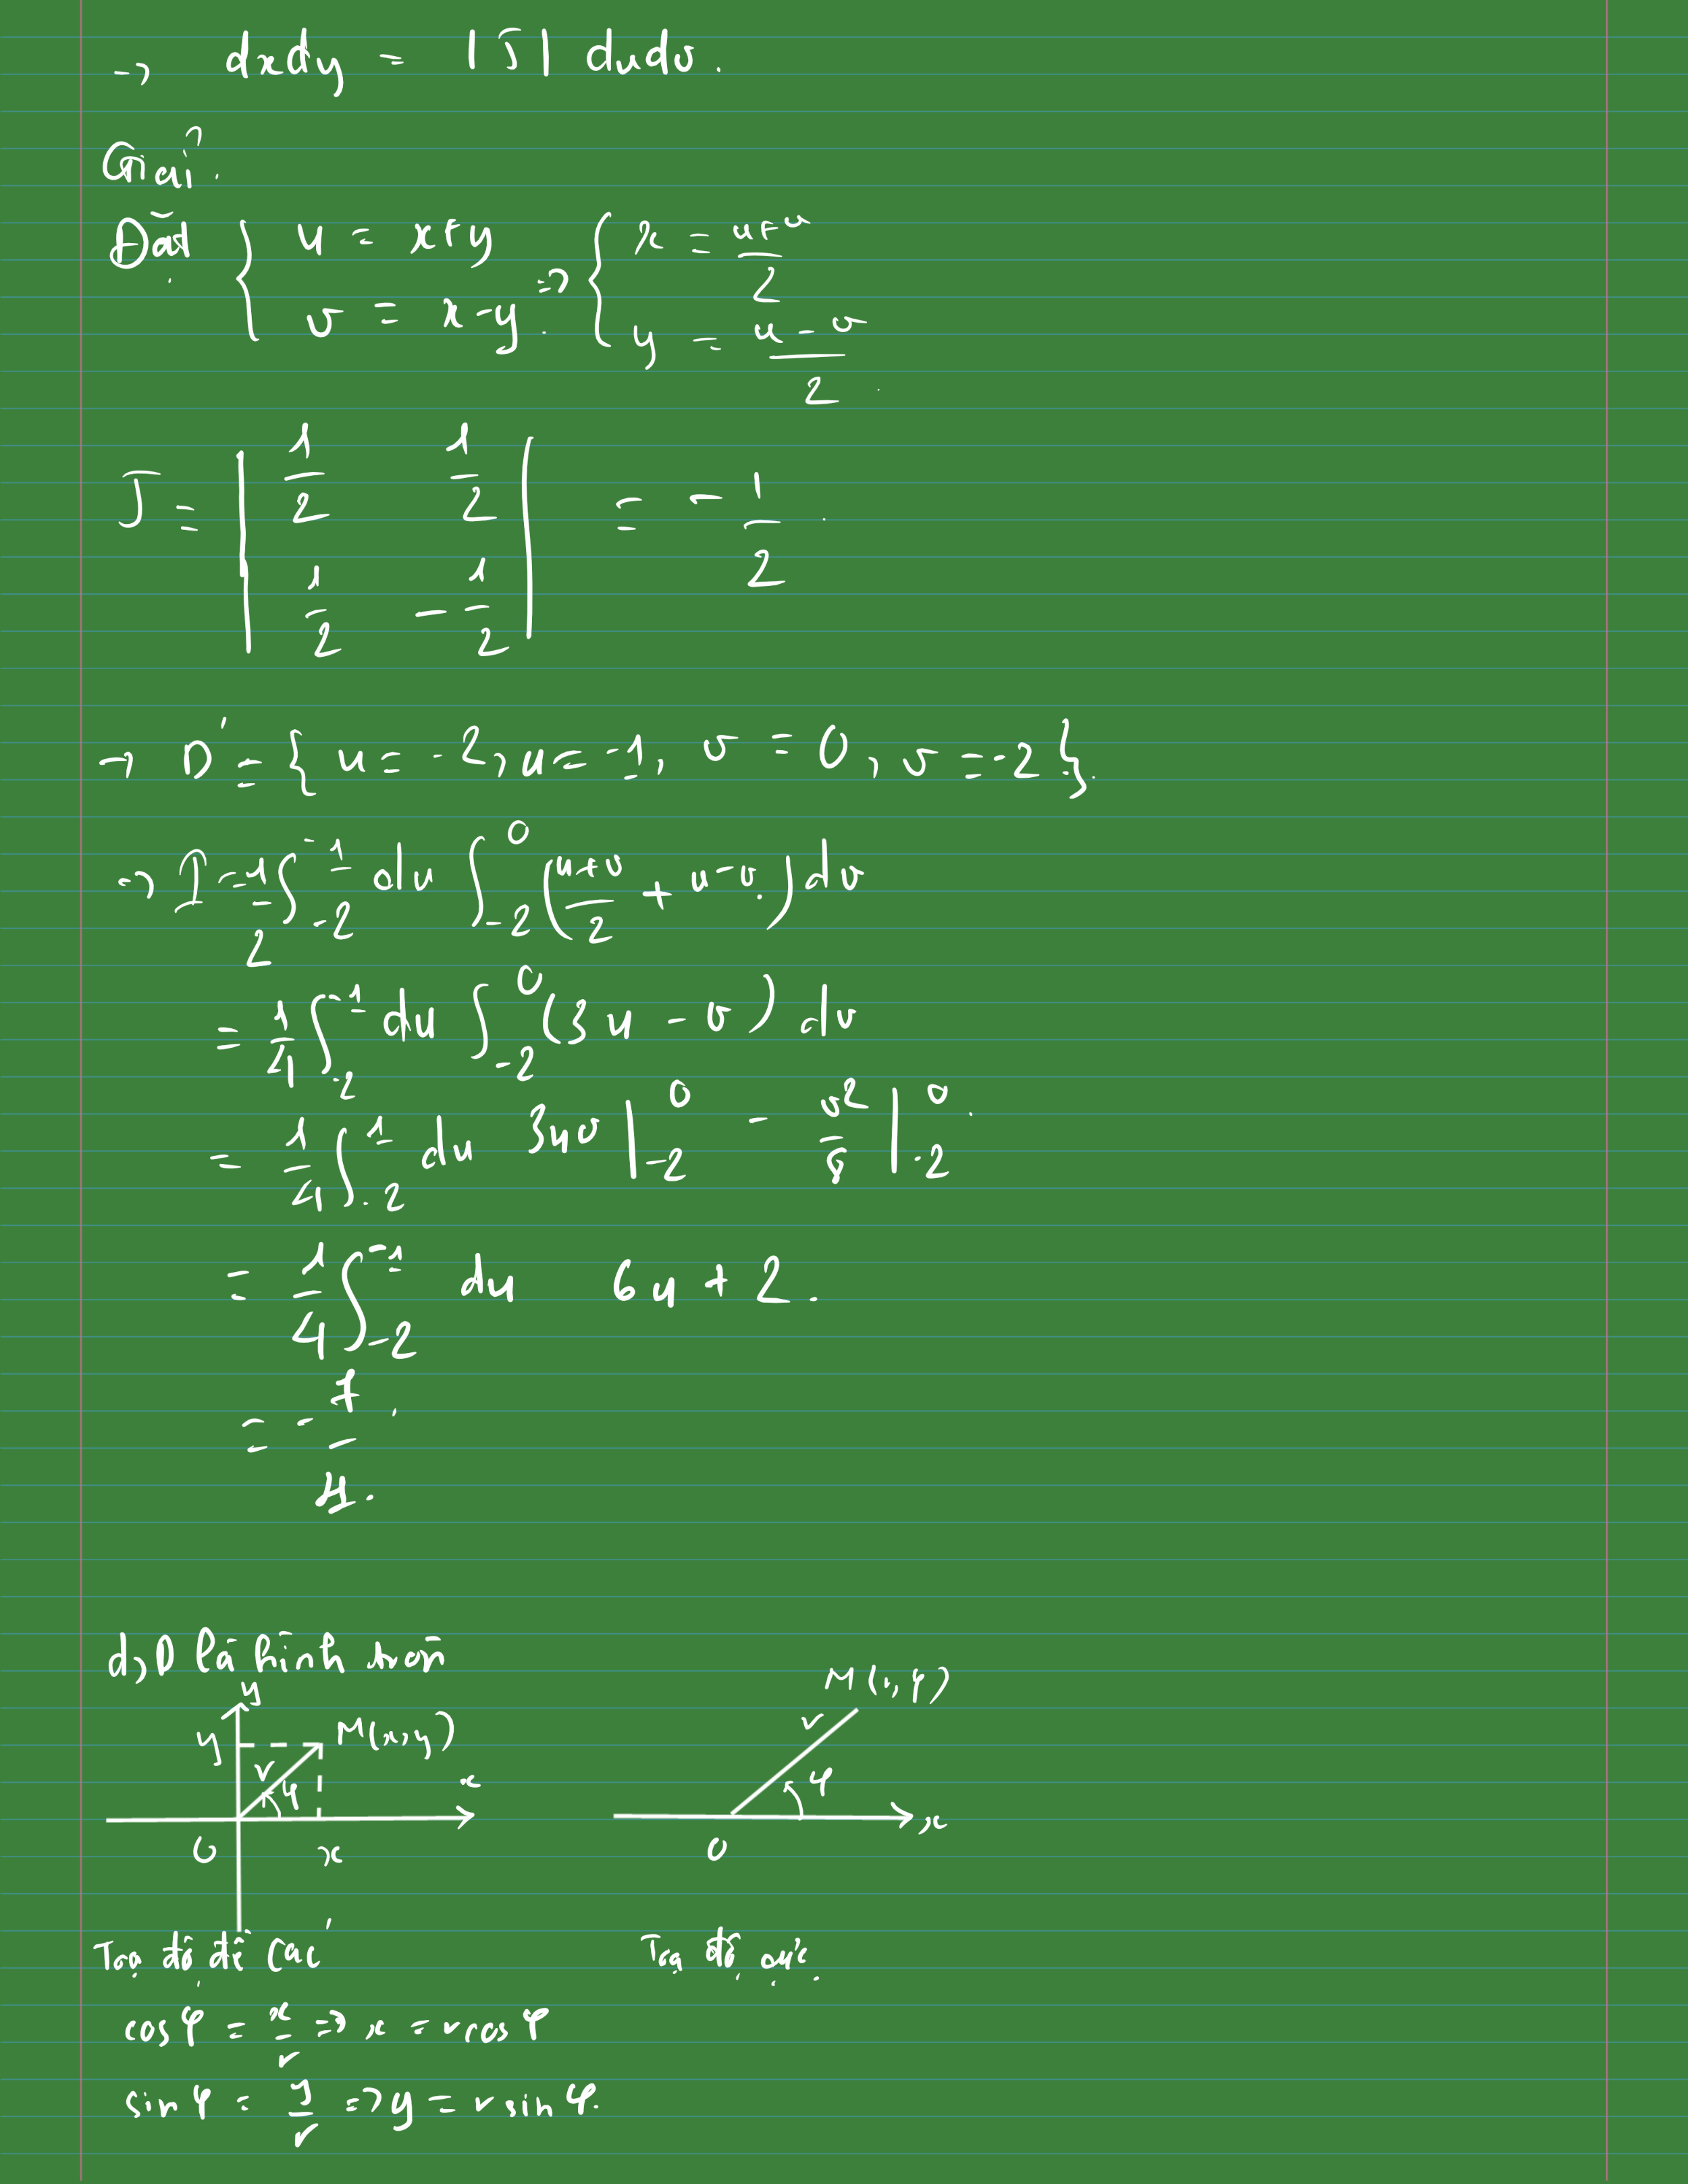 → dxdy = |J| dudv.
Giải.
Đặt { u = x+y => { x = (u+v)/2
v = x-y. y = (u-v)/2.
J = | 1/2 1/2 | = -1/2.
| 1/2 -1/2 |
→ D' = { u = -2, u = -1, v = 0, v = -2 }.
→ I = 1/2 ∫_{-2}^{-1} du ∫_{-2}^{0} ((u+v)/2 + u-v.) dv
= 1/4 ∫_{-2}^{-1} du ∫_{-2}^{0} (3u - v) dv
= 1/4 ∫_{-2}^{-1} du 3uv |_{-2}^{0} - v²/8 |_{-2}^{0}.
= 1/4 ∫_{-2}^{-1} du 6u + 2.
= -7/4.
d, D là hình tròn
y
M(x,y) M(r,φ)
y r φ x r φ
O x O x
Tọa độ đề Các Tọa độ cực.
cosφ = x/r => x = rcosφ
sinφ = y/r => y = r sinφ.